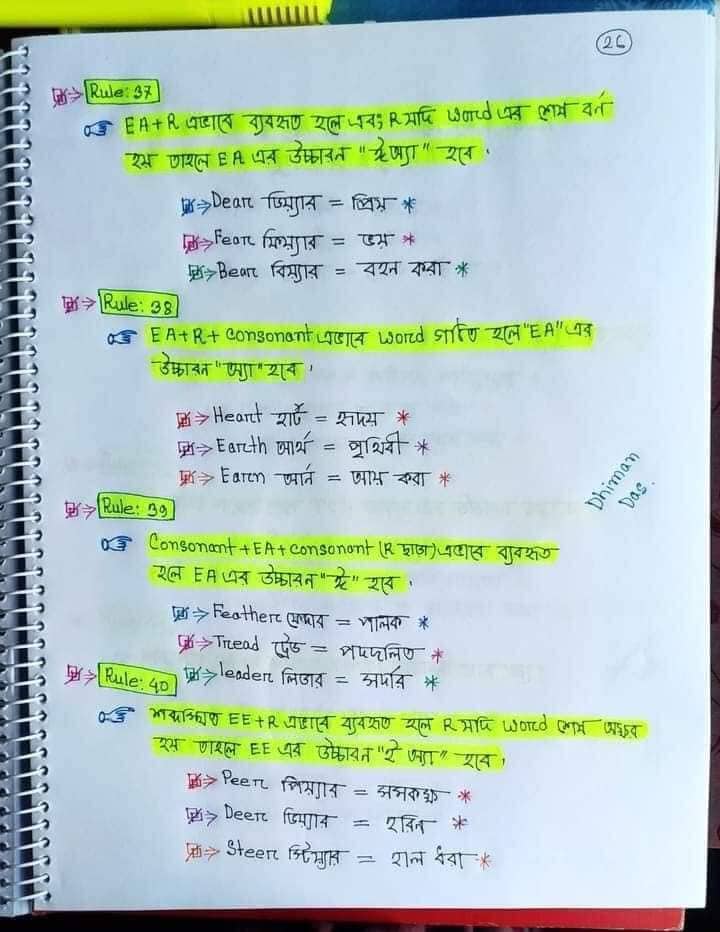 26
Rule: 37
EA+R এভাবে ব্যবহৃত হলে এবং R যদি word এর শেষ বর্ণ
হয় তাহলে EA এর উচ্চারন "ঈঅ্যা" হবে।
Dear ডিয়্যার = প্রিয় *
Fear ফিয়্যার = ভয় *
Bear বিয়্যার = বহন করা *
Rule: 38
EA+R+ consonant এভাবে word গঠিত হলে "EA" এর
উচ্চারন "অ্যা" হবে।
Heart হার্ট = হৃদয় *
Earth আর্থ = পৃথিবী *
Earn আর্ন = আয় করা *
Dhiman
Das.
Rule: 39
Consonant +EA+ consonant (R ছাড়া) এভাবে ব্যবহৃত
হলে EA এর উচ্চারন "ঈ" হবে।
Feather ফেদার = পালক *
Tread ট্রেড = পদদলিত *
leader লিডার = সর্দার *
Rule: 40
EE+R এভাবে ব্যবহৃত হলে R যদি word শেষ অক্ষর
হয় তাহলে EE এর উচ্চারন "ই অ্যা" হবে।
Peer পিয়্যার = সমকক্ষ *
Deer ডিয়্যার = হরিন *
Steer স্টিয়্যার = হাল ধরা *